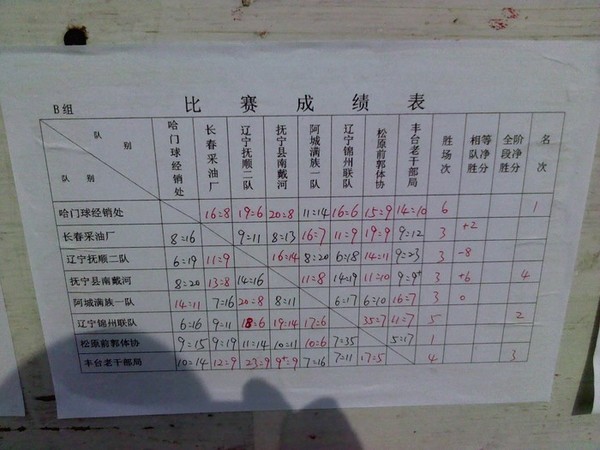 比赛成绩表
B组
队别 哈门球经销处 长春采油厂 辽宁抚顺二队 抚宁县南戴河 阿城满族一队 辽宁锦州联队 松原前郭体协 丰台老干部局 胜场次 相等队净胜分 全阶段净胜分 名次
队别
哈门球经销处 16=8 19=6 20=8 11=14 16=6 15=9 14=10 6 1
长春采油厂 8=16 9=11 8=13 16=7 11=9 19=9 9=12 3 +2
辽宁抚顺二队 6=19 11=9 16=14 8=20 6=18 14=11 9=23 3 -8
抚宁县南戴河 8=20 13=8 14=16 11=8 14=19 11=10 9=9+ 3 +6 4
阿城满族一队 14=11 7=16 20=8 8=11 6=17 6=10 16=7 3 0
辽宁锦州联队 6=16 9=11 18=6 19=14 17=6 35=7 11=7 5 2
松原前郭体协 9=15 9=19 11=14 10=11 10=6 7=35 5=17 1
丰台老干部局 10=14 12=9 23=9 9+=9 7=16 7=11 17=5 4 3